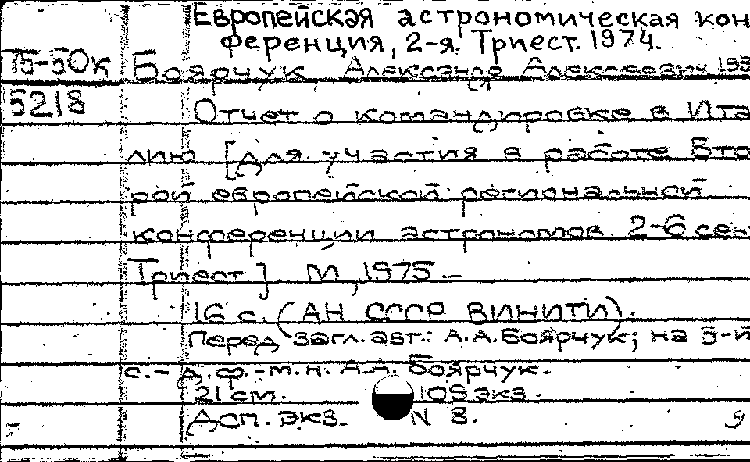 Европейская астрономическая кон
ференция, 2-я. Триест. 1974.
75-50к Боярчук, Александр Алексеевич 193
5218 Отчет о командировке в Ита
лию [для участия в работе Вто
рой европейской региональной
конференции астрономов. 2-6 сен
Триест]. М, 1975.-
16 с. (АН СССР ВИНИТИ).
Перед загл. авт.: А.А.Боярчук; на 5-й
с.- д.ф.-м.н. А.А. Боярчук.
21 см. 108 экз.
Дсп. экз. N 8.